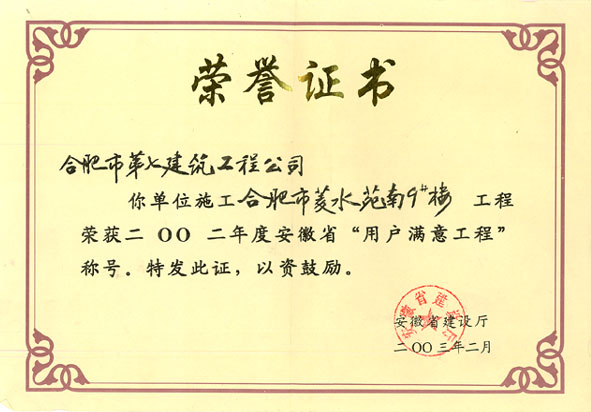 荣誉证书
合肥市第七建筑工程公司
你单位施工合肥市菱水苑南9#楼 工程
荣获二OO二年度安徽省“用户满意工程”
称号。特发此证，以资鼓励。
安徽省建设厅
安徽省建设厅
二OO三年二月